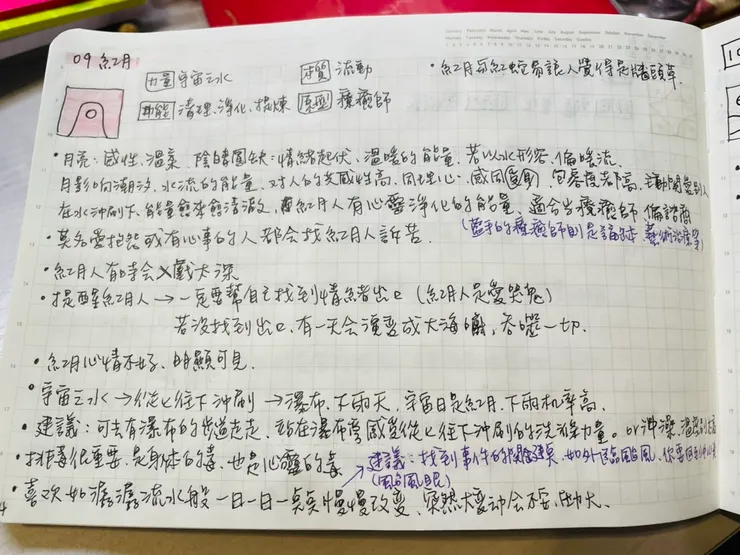 09 紅月
力量 宇宙之水
本質 流動
功能 清理、淨化、提煉
原型 療癒師
•紅月和紅蛇易讓人覺得是牆頭草
•月亮:感性、溫柔、陰晴圓缺:情緒起伏、溫暖的能量,若以水形容,偏暖流。
月影响潮汐,水流的能量,对人的共感性高,同理心、感同,包容度都高,主動關愛別人
在水冲刷下,能量會淨,紅月人有心靈淨化的能量,適合当療癒師,偏諮商
(藍手的療癒師則是身体、藝術治療等)
•莫名爱抱怨或有心事的人都会找紅月人訴苦。
•紅月人有時会入戲太深
•提醒紅月人→一定要幫自己找到情緒出口(紅月人是愛哭鬼)
若沒找到出口,有一天会演变成大海嘯,吞噬一切.
•紅月心情不好,明顯可見.
•宇宙之水→從上往下冲刷→瀑布、下雨天,宇宙日是紅月,下雨机率高.
•建議:可去有瀑布的步道走走,站在瀑布旁感受從上往下冲刷的洗滌力量。or 冲澡、
•排毒很重要,是身体的毒,也是心靈的毒
建議:找到事件的,如外面颱風,你要回到中心
(颱風眼)
•喜欢如潺潺流水般一日一日一点点慢慢改变,突然大变动会不安、